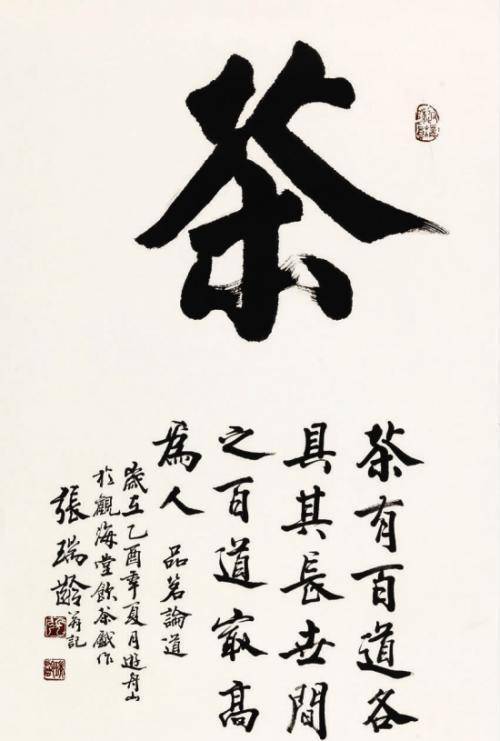 茶
茶有百道各
具其長世間
之百道最高
為人
品茗論道
歲在乙酉年夏月遊舟山
於觀海堂飲茶戲作
張瑞齡并記